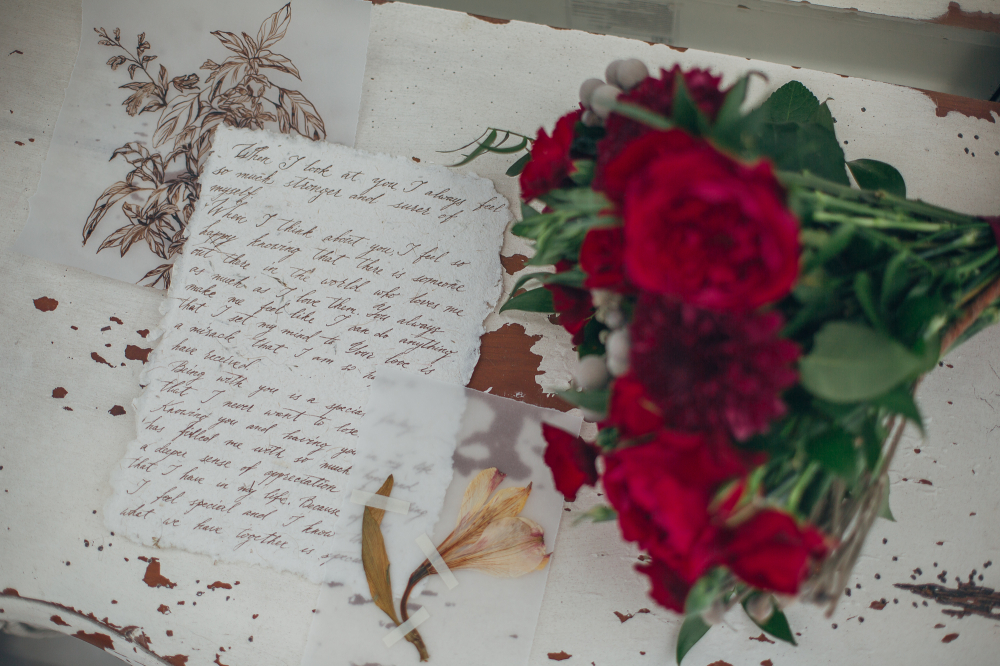 When I look at you I always feel
so much stronger and surer of
myself.
When I think about you, I feel so
happy knowing that there is someone
out there in the world who loves me
as much as I love them. You always
make me feel like I can do anything
that I set my mind to. Your love is
a miracle that I am so
have received.
Being with you is a special
that I never want to lose
Knowing you and having you
has filled me with so much
a deeper sense of appreciation
that I have in my life. Because
I feel special and I know
what we have together is special